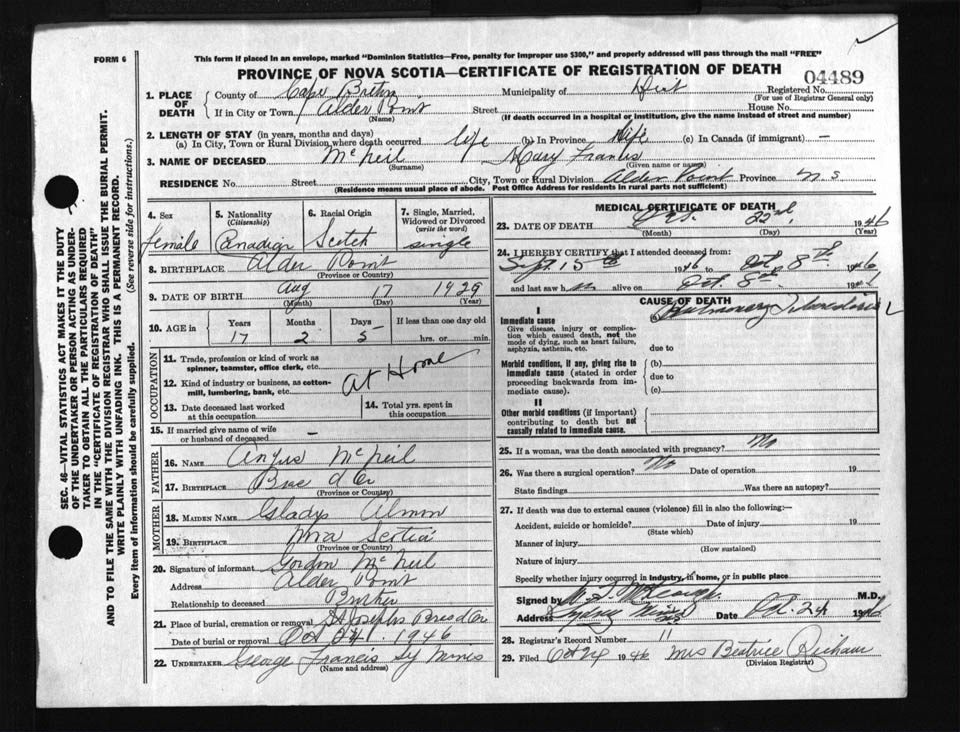 FORM 6
This form if placed in an envelope, marked "Dominion Statistics—Free, penalty for improper use $300," and properly addressed will pass through the mail "FREE"
PROVINCE OF NOVA SCOTIA—CERTIFICATE OF REGISTRATION OF DEATH
04489
1. PLACE OF DEATH County of Cape Breton Municipality of Registered No.
(For use of Registrar General only)
If in City or Town Alder Point Street House No.
(Name) (If death occurred in a hospital or institution, give the name instead of street and number)
2. LENGTH OF STAY (in years, months and days)
(a) In City, Town or Rural Division where death occurred life (b) In Province life (c) In Canada (if immigrant) —
3. NAME OF DECEASED McNeil Mary Francis
(Surname) (Given name or names)
RESIDENCE No. Street City, Town or Rural Division Alder Point Province N. S.
(Residence means usual place of abode. Post Office Address for residents in rural parts not sufficient)
4. Sex female
5. Nationality (Citizenship) Canadian
6. Racial Origin Scotch
7. Single, Married, Widowed or Divorced (write the word) single
8. BIRTHPLACE Alder Point
(Province or Country)
9. DATE OF BIRTH Aug 17 1929
(Month) (Day) (Year)
10. AGE in Years Months Days If less than one day old
17 2 5 hrs. or min.
OCCUPATION
11. Trade, profession or kind of work as spinner, teamster, office clerk, etc. At Home
12. Kind of industry or business, as cotton-mill, lumbering, bank, etc.
13. Date deceased last worked at this occupation
14. Total yrs. spent in this occupation
15. If married give name of wife or husband of deceased —
FATHER
16. NAME Angus McNeil
17. BIRTHPLACE Bras d'Or
MOTHER
18. MAIDEN NAME Gladys
19. BIRTHPLACE Nova Scotia
(Province or Country)
20. Signature of informant Gordon McNeil
Address Alder Point
Relationship to deceased Brother
21. Place of burial, cremation or removal St Josephs Bras d'Or
Date of burial or removal Oct 24 1946
22. UNDERTAKER George Francis Sy Mines
(Name and address)
MEDICAL CERTIFICATE OF DEATH
23. DATE OF DEATH Oct. 22nd, 1946
(Month) (Day) (Year)
24. I HEREBY CERTIFY that I attended deceased from:
Sept. 15th 1946 to Oct. 8th 1946
and last saw h alive on Oct. 8th 194
CAUSE OF DEATH
I
Immediate cause (a) Pulmonary Tuberculosis
Give disease, injury or complication which caused death, not the mode of dying, such as heart failure, asphyxia, asthenia, etc.
due to
Morbid conditions, if any, giving rise to immediate cause (stated in order proceeding backwards from immediate cause).
(b)
due to
(c)
II
Other morbid conditions (if important) contributing to death but not causally related to immediate cause.
25. If a woman, was the death associated with pregnancy? No
26. Was there a surgical operation? No Date of operation 19
State findings Was there an autopsy?
27. If death was due to external causes (violence) fill in also the following:—
Accident, suicide or homicide? Date of injury 19
(State which)
Manner of injury
(How sustained)
Nature of injury
Specify whether injury occurred in industry, in home, or in public place
Signed by M.D.
Address Sydney Mines Date Oct. 24 1946
28. Registrar's Record Number 11
29. Filed Oct 24 1946 Mrs Beatrice
(Division Registrar)
SEC. 46—VITAL STATISTICS ACT MAKES IT THE DUTY
OF THE UNDERTAKER OR PERSON ACTING AS UNDER-
TAKER TO OBTAIN ALL THE PARTICULARS REQUIRED
IN THE "CERTIFICATE OF REGISTRATION OF DEATH"
AND TO FILE THE SAME WITH THE DIVISION REGISTRAR WHO SHALL ISSUE THE BURIAL PERMIT.
WRITE PLAINLY WITH UNFADING INK. THIS IS A PERMANENT RECORD.
Every item of information should be carefully supplied. (See reverse side for instructions.)